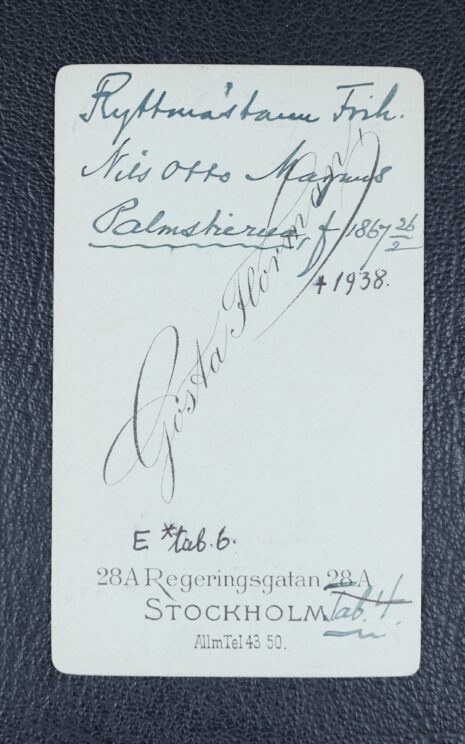 Ryttmästaren Frih.
Nils Otto Magnus
Palmstierna, f 1867 26/2
+ 1938.
Gösta Florman
E *tab. 6.
28A Regeringsgatan 28A
STOCKHOLM
Tab. 4.
Allm Tel 43 50.